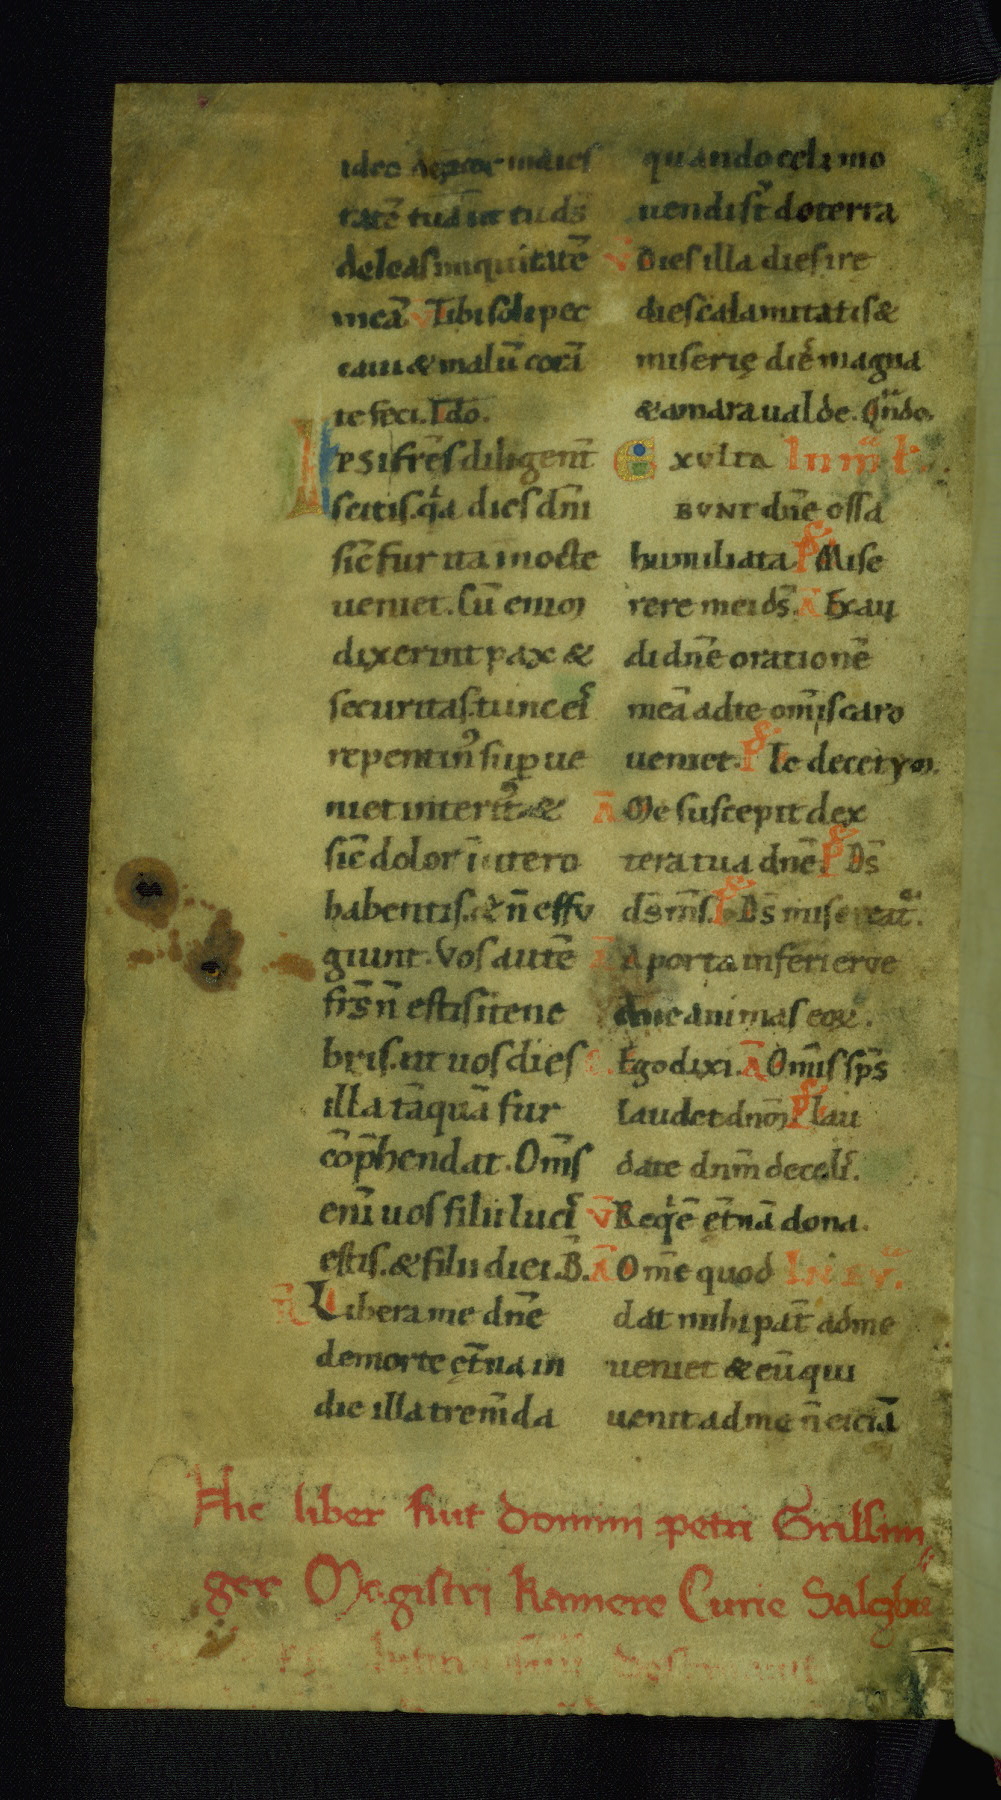 ideo deꝑcor maies
tatē tuā ut tu dś
deleas iniquitatē
meā V̄ Tibi soli pec
caui & malū corā
te feci. Ido.
Ipsi frēs diligent̄
scitis. qa dies dn̄i
sic̄ fur ita in nocte
ueniet. Cū enim
dixerint pax &
securitas. tunc eis
repentin᾽ suꝑue
niet interit᾽. &
sic̄ dolor ī utero
habentis. & n̄ effu
giunt. Vos autē
frs̄ n̄ estis in tene
bris. ut uos dies
illa tāquā fur
cōp̄hendat. Om̄s
enī uos filii lucis
estis. & filii diei. B.
R̄ Libera me dn̄e
de morte et̄na in
die illa trem̄da
quando celi mo
uendi st̄ & terra
V̄ Dies illa dies ire
dies calamitatis &
miserię dies magna
& amara ualde. Qn̄do.
Exulta In m̄ l.
bunt dn̄e ossa
humiliata. P̄s Mise
rere mei ds̄. Ā Exau
di dn̄e orationē
meā ad te om̄is caro
ueniet. P̄s Te decet ym.
Ā Me suscepit dex
tera tua dn̄e. P̄s Ds̄
ds̄ ms̄. P̄s Ds̄ misereat.
Ā A porta inferi erue
dn̄e animas eoꝝ.
Ego dixi. Ā Om̄is sp̄s
laudet dnm̄ P̄s lau
date dnm̄ de celis.
V̄ Req̄ē et̄nā dona.
Ā Om̄e quod IN EV̄.
dat mihi pat̄ ad me
ueniet & eū qui
uenit ad me n̄ eiciā
Hic liber fuit domini petri Grillim
ger Magistri kamere Curie Salczbur